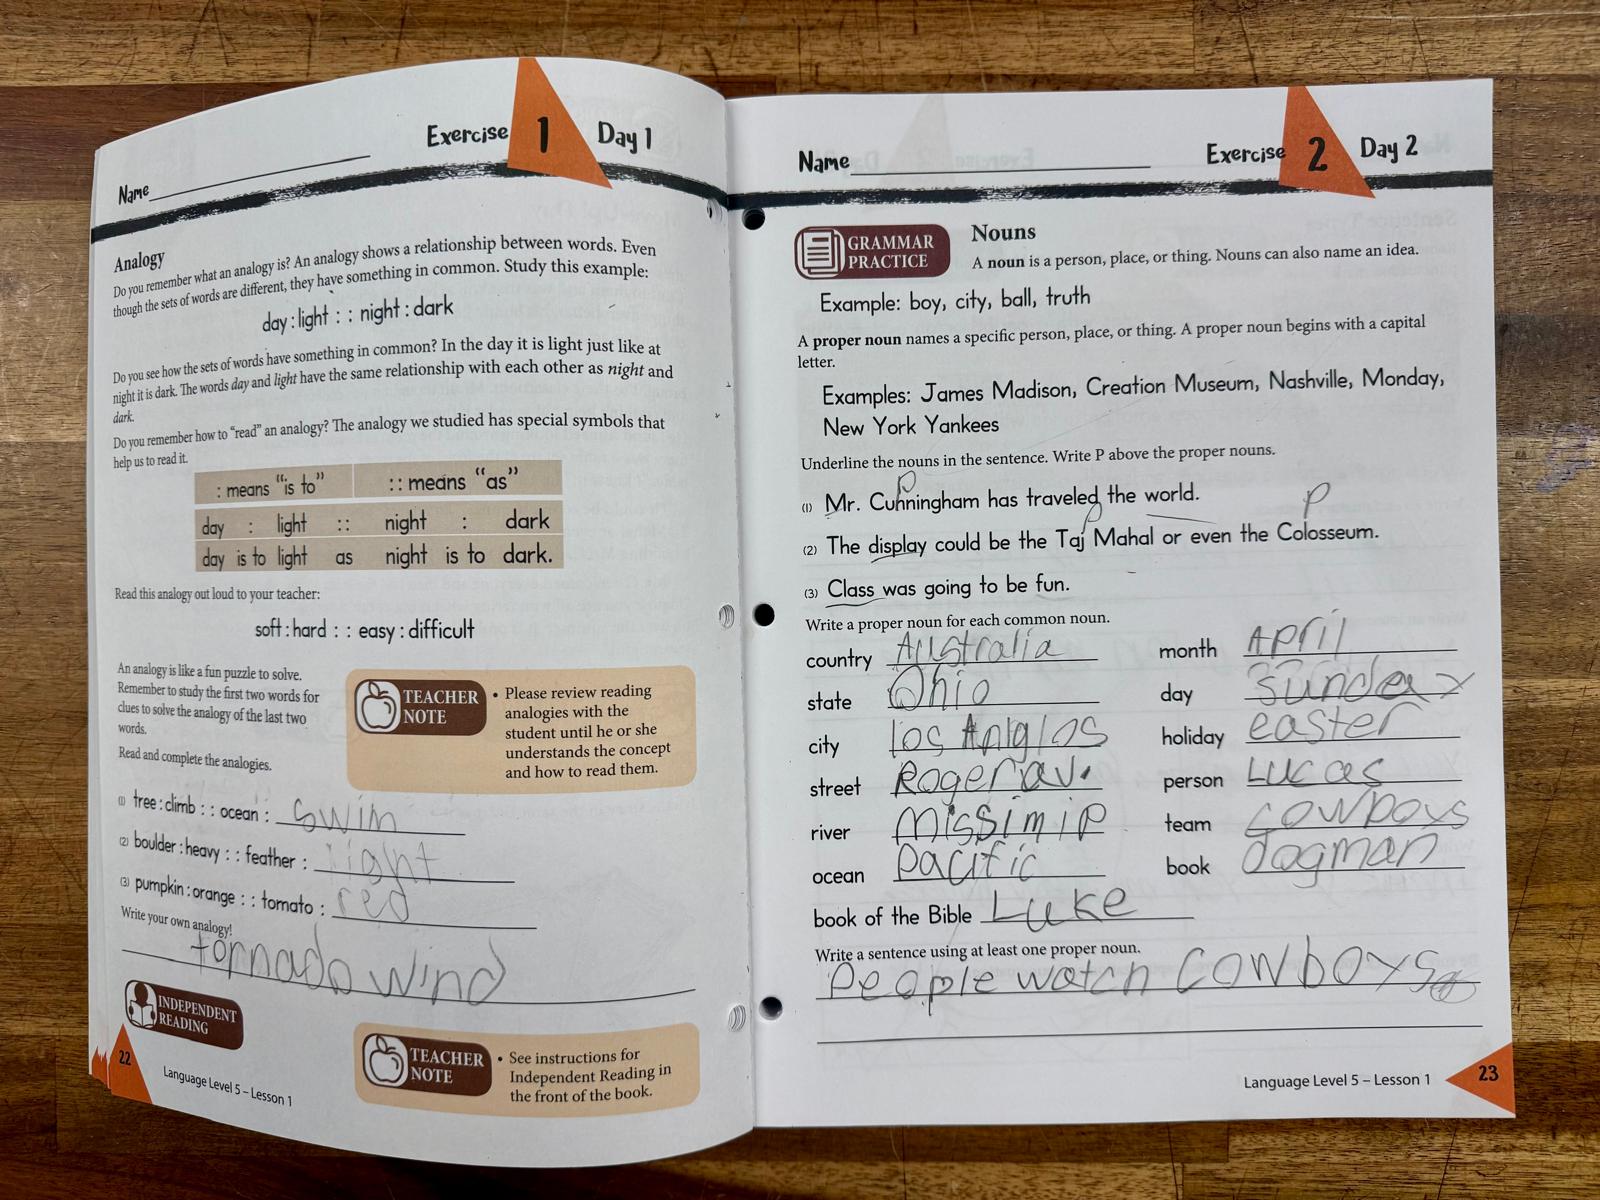 Exercise 1 Day 1
Name
Analogy
Do you remember what an analogy is? An analogy shows a relationship between words. Even
though the sets of words are different, they have something in common. Study this example:
day : light : : night : dark
Do you see how the sets of words have something in common? In the day it is light just like at
night it is dark. The words day and light have the same relationship with each other as night and
dark.
Do you remember how to “read” an analogy? The analogy we studied has special symbols that
help us to read it.
: means “is to” : : means “as”
day : light :: night : dark
day is to light as night is to dark.
Read this analogy out loud to your teacher:
soft : hard : : easy : difficult
An analogy is like a fun puzzle to solve.
Remember to study the first two words for
clues to solve the analogy of the last two
words.
Read and complete the analogies.
TEACHER
NOTE
• Please review reading
analogies with the
student until he or she
understands the concept
and how to read them.
(1) tree : climb : : ocean : swim
(2) boulder : heavy : : feather : light
(3) pumpkin : orange : : tomato : red
Write your own analogy!
tornado wind
INDEPENDENT
READING
TEACHER
NOTE
• See instructions for
Independent Reading in
the front of the book.
22
Language Level 5 – Lesson 1
Name
Exercise 2 Day 2
GRAMMAR
PRACTICE
Nouns
A noun is a person, place, or thing. Nouns can also name an idea.
Example: boy, city, ball, truth
A proper noun names a specific person, place, or thing. A proper noun begins with a capital
letter.
Examples: James Madison, Creation Museum, Nashville, Monday,
New York Yankees
Underline the nouns in the sentence. Write P above the proper nouns.
P
(1) Mr. Cunningham has traveled the world.
P P
(2) The display could be the Taj Mahal or even the Colosseum.
(3) Class was going to be fun.
Write a proper noun for each common noun.
country Australia month April
state Ohio day Sunday
city los Anglos holiday easter
street Roger av. person Lucas
river missimip team cowboys
ocean pacific book dogman
book of the Bible Luke
Write a sentence using at least one proper noun.
People watch cowboys
Language Level 5 – Lesson 1
23